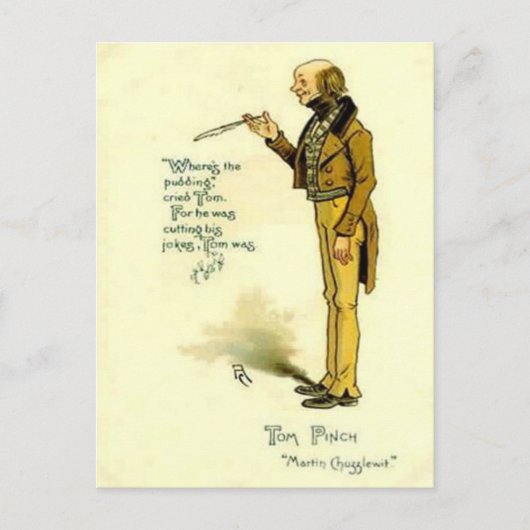 "Where's the
pudding,"
cried Tom.
For he was
cutting his
jokes, Tom was
TOM PINCH
"Martin Chuzzlewit."